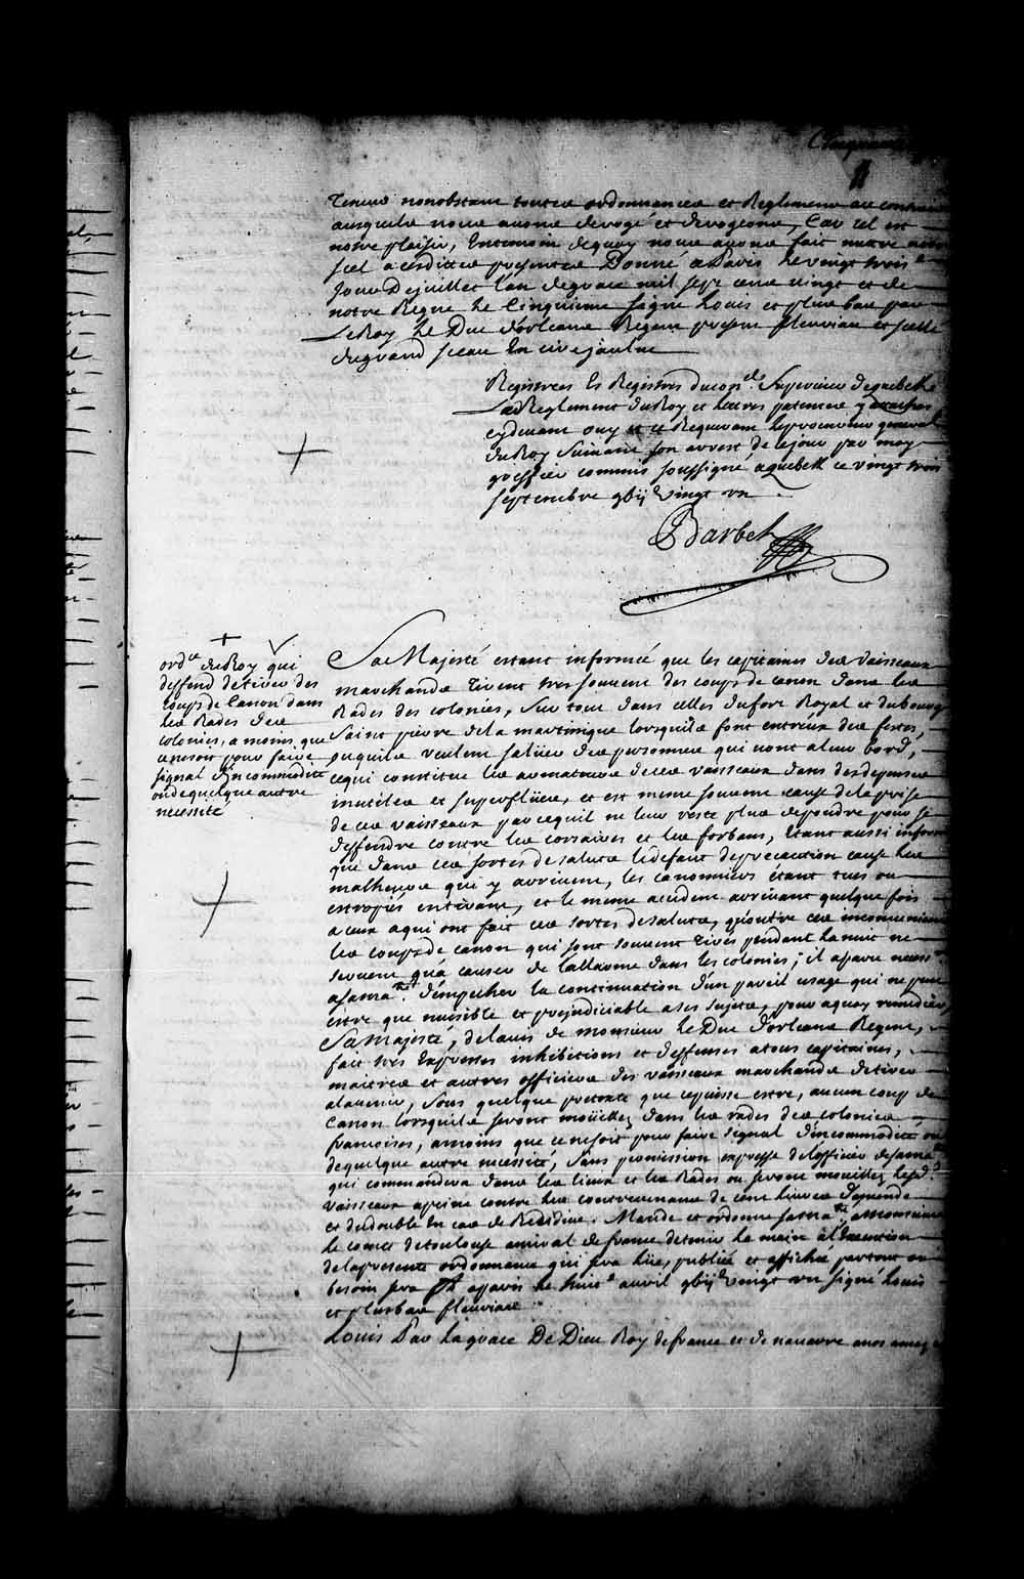 11
Teneur nonobstant toutes ordonnances et Reglemens au contraire
ausquels nous auons derogé et derogeons, Car tel est
nostre plaisir, Entemoin dequoy nous auons fait mettre
scel acesdittes presentes Donné a Paris le vingt trois e
Jour De juillet l'an degrace mil sept cens vingt et de
notre Regne le Cinquieme signé Louis et plus bas par
Le Roy, le Duc d'orleans Regent present fleuriau et scellé
du grand sceau En cire jaulne
Registrées Es Registres du con.el Superieur de quebek
Led Reglement du Roy et lettres patentes y attachés
cydeuant ouy et ce Requerant le procureur general
du Roy Suiuant son arrest de ce jour par moy
greffier commis soussigné a quebek ce vingt trois
septembre gbij vingt un
Barbel
ord.ce du Roy qui
deffend de tirer des
coups de Canon dans
les Rades des
colonies, a moins que
ce ne soit pour faire
signal d'Incommodité
ou de quelque autre
necessité
Sa Majesté estant informée que les capitaines des vaisseaux
marchands tirent tres souuent des coups de canon dans les
Rades des colonies, sur tout dans celles du fort Royal et du bourg
Saint pierre de la martinique lorsqu'ils font entr'eux des festes,
ou qu'ils veulent salüer des personnes qui vont a leur bord,
ce qui constitue les armateurs de ces vaisseaux dans des depenses
inutiles et superflües, et est meme souuent cause de la prise
de ces vaisseaux parce qu'il ne leur reste plus de poudre pour se
deffendre contre les corsaires et les forbans, Etant aussi informée
que dans ces sortes de saluts le defaut de precaution cause les
malheurs qui y arriuent, les canonniers étant tués ou
estropiés en tirant, et le meme accident arriuant quelque fois
a ceux a qui ont fait ces sortes de saluts, qu'outre ces inconueniens
les coups de canon qui sont souuent tirés pendant la nuit ne
seruent qu'a causer de l'allarme dans les colonies; il a paru necess.re
a sa ma.té d'empecher la continuation d'un pareil usage qui ne peut
estre que nuisible et prejudiciable a ses sujets, pour a quoy remedier,
Sa Majesté, de l'auis de monsieur le Duc d'orleans Regent,
fait tres Expresses inhibitions et deffenses a tous capitaines,
maitres et autres officiers des vaisseaux marchands de tirer
alauenir, sous quelque pretexte que ce puisse estre, aucun coup de
Canon lorsqu'ils seront moüillez dans les rades des colonies
francoises, amoins que ce ne soit pour faire signal d'incommodité ou
de quelque autre necessité, sans permission expresse de l'officier de sama.té
qui commandera dans les lieux et les Rades ou seront mouillez lesd.
vaisseaux apeine contre les contreuenans de cent liures d'amende
et du double En cas de Recidiue. Mande et ordonne sa ma.té a Monsieur
le comte de toulouse amiral de france de tenir la main a l'Execution
de la presente ordonnance qui sera lüe, publiée et affichée partout ou
besoin sera fait a paris le huit.e auril gbij vingt un signé Louis
et plus bas fleuriau
Louis Par la grace De Dieu Roy de france et de nauarre a nos amez